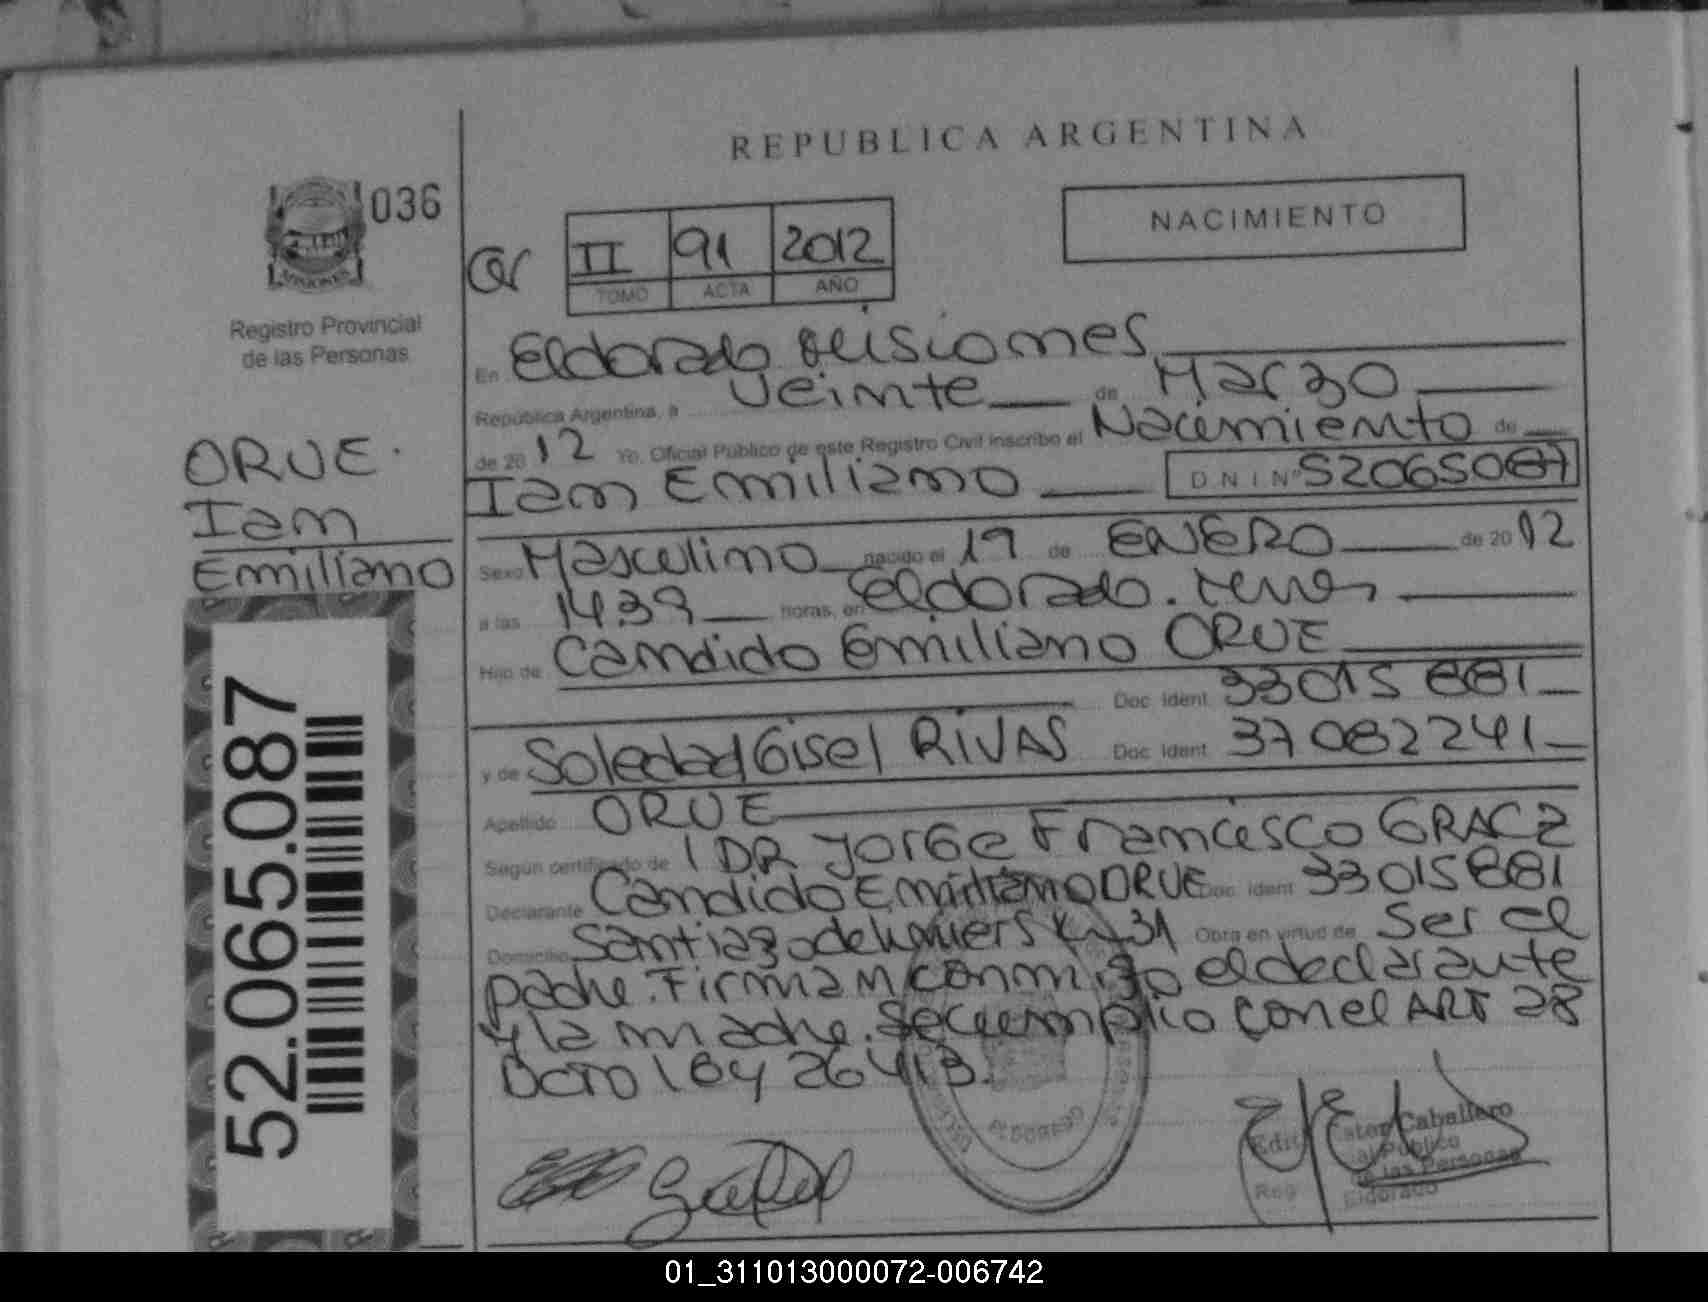 REPUBLICA ARGENTINA
036
NACIMIENTO
II 91 2012
TOMO ACTA AÑO
MISIONES
Registro Provincial
de las Personas
ORUE.
Ian
Emiliano
52.065.087
En Eldorado Misiones
República Argentina, a veinte de Marzo
de 20 12 Yo, Oficial Público de este Registro Civil inscribo el Nacimiento de
Ian Emiliano D.N.I. Nº 52065087
Sexo Masculino nacido el 19 de ENERO de 2012
a las 14.39 horas, en Eldorado.
Hijo de Candido Emiliano ORUE
Doc. Ident. 33015881
y de Soledad Gisel RIVAS Doc. Ident. 37082241
Apellido ORUE
Según certificado de DR Jorge Francisco GRACZ
Declarante Candido Emiliano ORUE Doc. Ident. 33015881
Domicilio Santiago de Liniers Km 31 Obra en virtud de Ser el
padre. Firman conmigo el declarante
y la madre. Se cumplio con el ART 28
Dcto ley 26413.
ELDORADO
Ester Caballero
Oficial Público
de las Personas
Reg
Eldorado
01_311013000072-006742